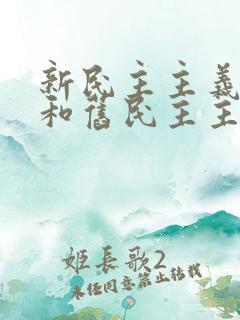 新民主主義
和舊民主主
姬長歌2
未经同意禁止转载